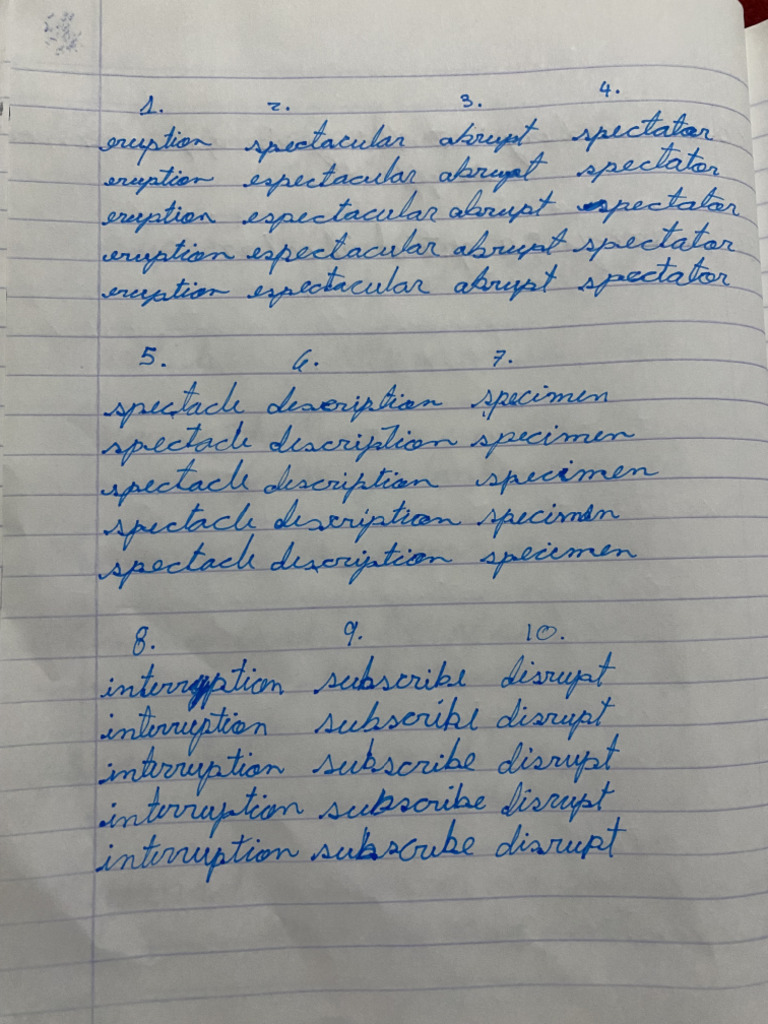 1. 2. 3. 4.
eruption spectacular abrupt spectator
eruption espectacular abrupt spectator
eruption espectacular abrupt spectator
eruption espectacular abrupt spectator
eruption espectacular abrupt spectator
5. 6. 7.
spectacle description specimen
spectacle description specimen
spectacle description specimen
spectacle description specimen
spectacle description specimen
8. 9. 10.
interruption subscribe disrupt
interruption subscribe disrupt
interruption subscribe disrupt
interruption subscribe disrupt
interruption subscribe disrupt